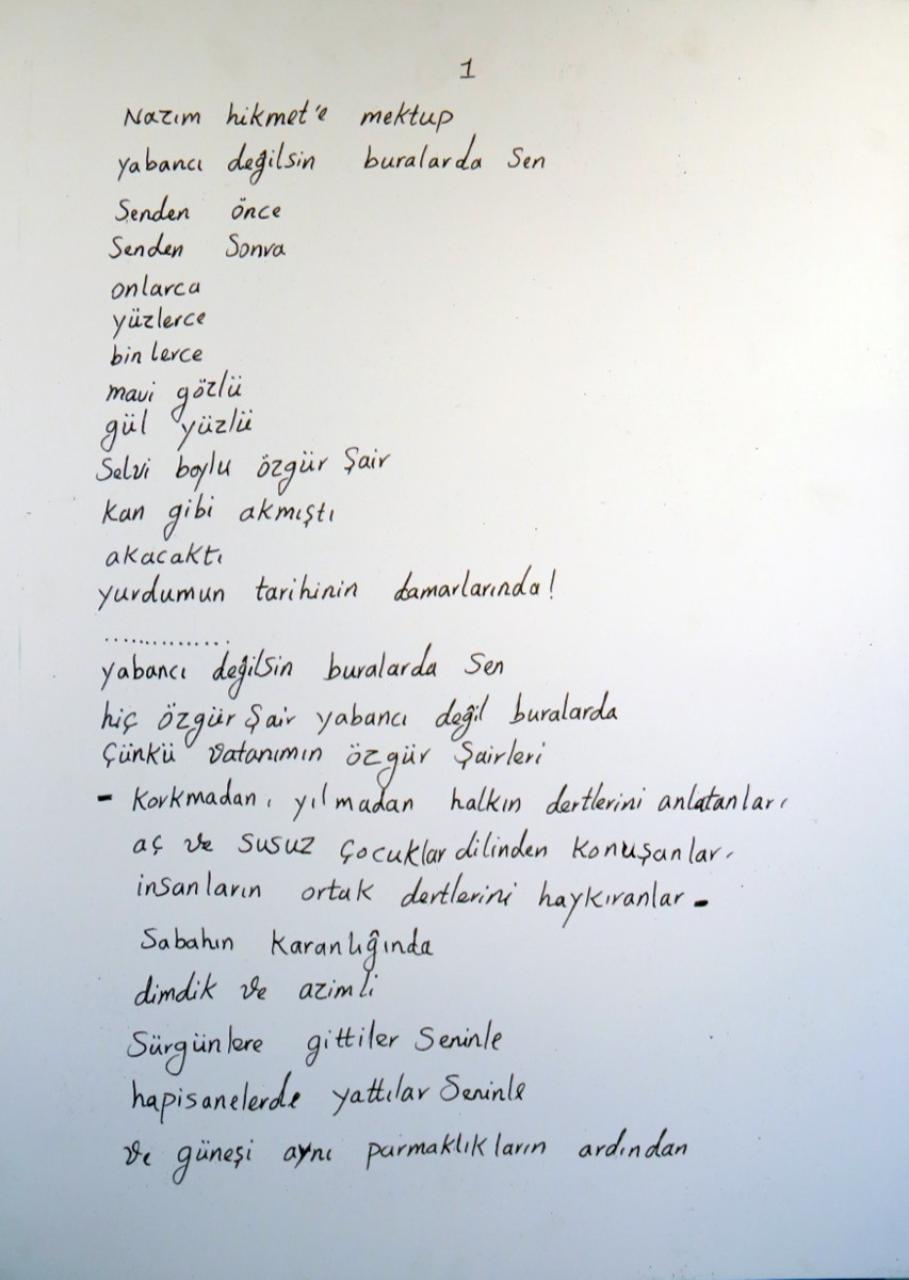 1
Nazım hikmet'e mektup
yabancı değilsin buralarda Sen
Senden önce
Senden Sonra
onlarca
yüzlerce
binlerce
mavi gözlü
gül yüzlü
Selvi boylu özgür Şair
Kan gibi akmıştı
akacaktı
yurdumun tarihinin damarlarında!
..............
yabancı değilsin buralarda Sen
hiç özgür Şair yabancı değil buralarda
Çünkü vatanımın özgür Şairleri
- Korkmadan, yılmadan halkın dertlerini anlatanlar,
aç ve susuz Çocuklar dilinden Konuşanlar,
insanların ortak dertlerini haykıranlar -
Sabahın Karanlığında
dimdik ve azimli
Sürgünlere gittiler Seninle
hapisanelerde yattılar Seninle
ve güneşi aynı parmaklıkların ardından